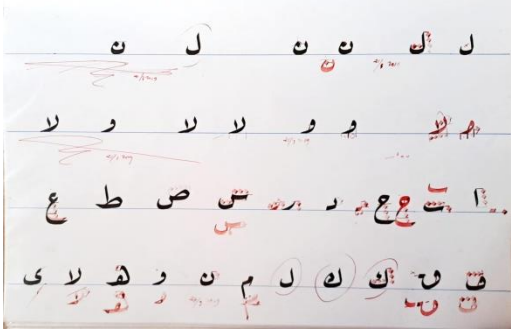 ل ل ن ن ل ن
لا لا و و لا لا و لا
ا ت ح د ر س ص ط ع
ف ق ك ك ل م ن و ه لا ى